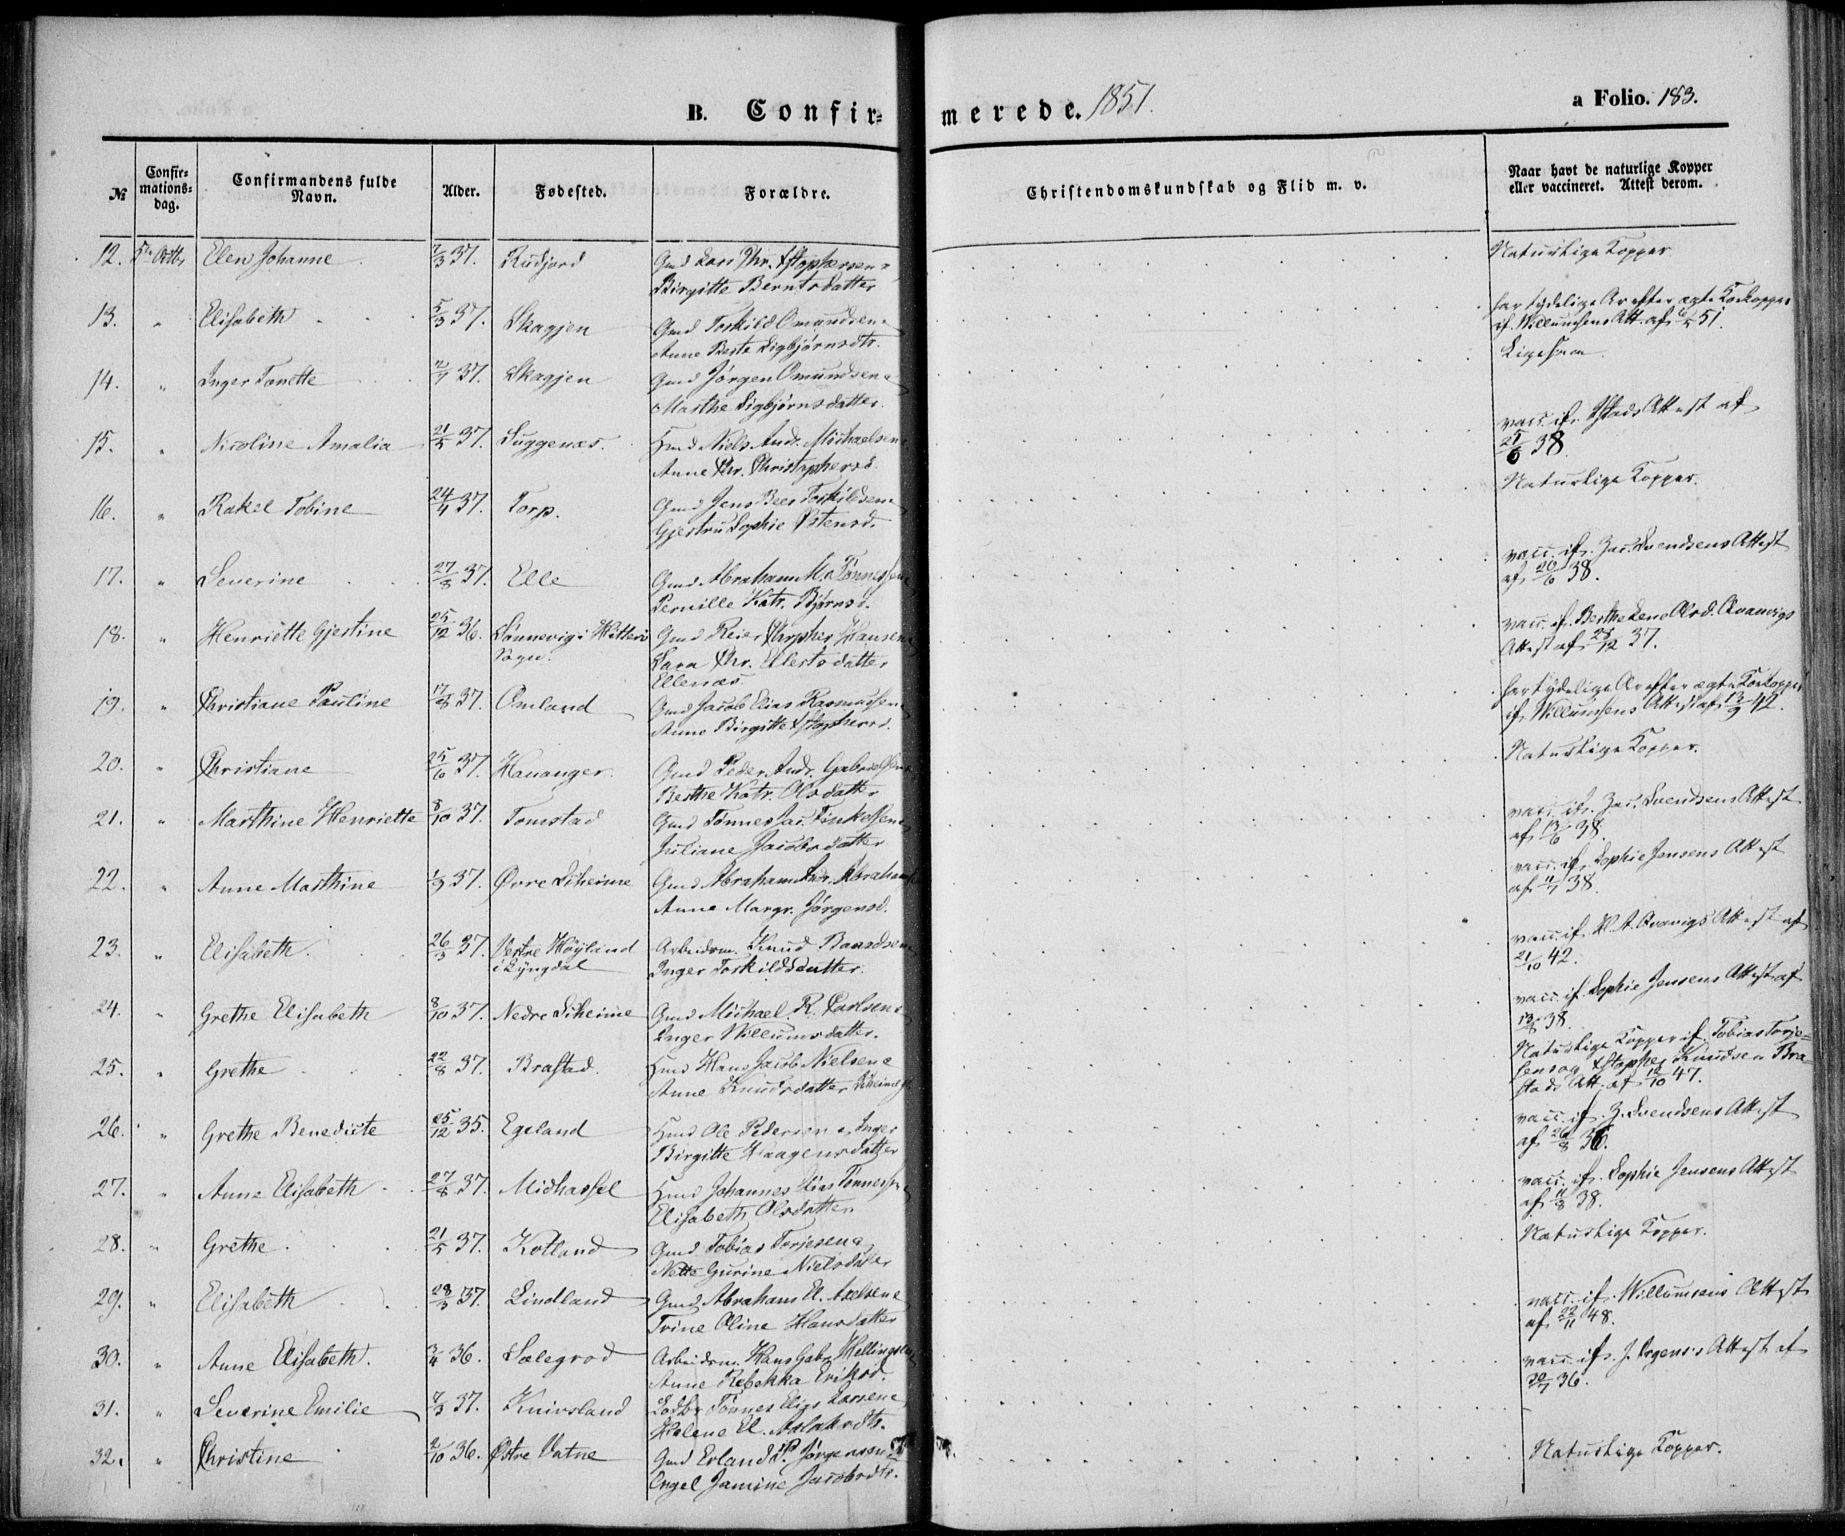 B. Confir- merede. 1851.
a Folio. 183.
№
Confir-
mations-
dag.
Confirmandens fulde
Navn.
Alder.
Fødested.
Forældre.
Christendomskundskab og Flid m. v.
Naar havt de naturlige Kopper
eller vaccineret. Attest derom.
12. 5te Octbr Elen Johanne 7/3 37. Rudjord Gmd Lars Chr. Xstophersen Naturlige Kopper
Birgitte Berntsdatter
13. " Elisabeth 5/3 37. Skagjen Gmd Torkild Omundsen har tydelige Ar efter ægte Kokopper
Anne Berte Sigbjørnsdtr. if. Willumsens Att. af 51.
14. " Inger Tonette 37. Skagjen Gmd Jørgen Omundsen Ligesaa
Marthe Sigbjørnsdatter
15. " Nicoline Amalia 21/5 37. Suggenæs Hmd Niels Andr. Michaelsen vacc. if. Attest af
Anne Chr. Christophersd. 21/6 38.
16. " Rakel Tobine 24/4 37. Torp. Gmd Jens Beer Torkildsen Naturlige Kopper.
Gjertru Sophie Østensd.
17. " Severine 27/3 37. Elle Gmd Abraham M. Tønnessen vacc. if. Zac. Svendsens Attest
Pernille Katr. Bjørnsd. af 20/6 38.
18. " Henriette Gjestine 25/12 36. Sønnevig i Hitterø Gmd Reier Chrpher Hansen vacc. if. Berthe Lene Olsd. Qvanvigs
Sogn. Sara Chr. Ellertsdatter Attest af 28/12 37.
Ellenæs
19. " Christiane Pauline 17/8 37. Omland Gmd Jacob Elias Rasmussen har tydelige Ar efter ægte Kokopper
Anne Birgitte Xstophersd. if. Willumsens Attest af 13/9 42.
20. " Christiane 25/6 37. Hananger Gmd Peder Andr. Gabrielsen Naturlige Kopper.
Berthe Katr. Olsdatter
21. " Marthine Henriette 8/10 37. Tomstad Gmd Tønnes Jac. Vinkelsen vacc. if. Zac. Svendsens Attest
Juliane Jacobsdatter af 13/6 38.
22. " Anne Marthine 1/3 37. Øvre Liheime Gmd Abraham Abrahams vacc. if. Sophie Jensens Attest
Anne Margr. Jørgensd. af 11/7 38.
23. " Elisabeth 26/3 37. Vestre Høyland Arbeidsm. Knud Baardsen vacc. if. Attest af
i Lyngdal Inger Torkildsdatter. 21/10 42.
24. " Grethe Elisabeth 8/10 37. Nedre Liheime Gmd Michael R. Carlsen vacc. if. Sophie Jensens Attest af
Inger Willumsdatter. 13/8 38.
25. " Grethe 22/8 37. Brastad. Hmd Hans Jacob Nielsen Naturlige Kopper if. Tobias Torje-
Anne Knudsdatter sens og Xstopher Knudsen Bra
stads Att. af 12/10 47.
26. " Grethe Benedicte 25/12 35. Egeland Hmd Ole Pedersen Inger vacc. if. Z. Svendsens Attest
Birgitte Haagensdatter af 26/8 36.
27. " Anne Elisabeth 27/8 37. Midhassel Hmd Johannes Elias Tønnessen vacc. if. Sophie Jensens Attest
Elisabeth Olsdatter af 11/8 38.
28. " Grethe 21/5 37. Kotland Gmd Tobias Torjesen Naturlige Kopper.
Nette Gurine Nielsdatter
29. " Elisabeth 28/3 37. Lindland Gmd Abraham El. Axelsen vacc. if. Willumsens Attest
Trine Oline Hansdatter af 22/11 48.
30. " Anne Elisabeth. 3/4 36. Sælegrod Arbeidsm. Hans Gabr. Hellingsen vacc. if. Attest af
Anne Rebekka Eriksd. 20/7 36.
31. " Severine Emilie 7/3 37. Knivsland Lodbr Tønnes Elias Larsen
Helene El. Aslaksdtr.
32. " Christine 2/10 36. Østre Vatne Gmd Erland P. Jørgensen Naturlige Kopper.
Engel Jamine Jacobsdtr.